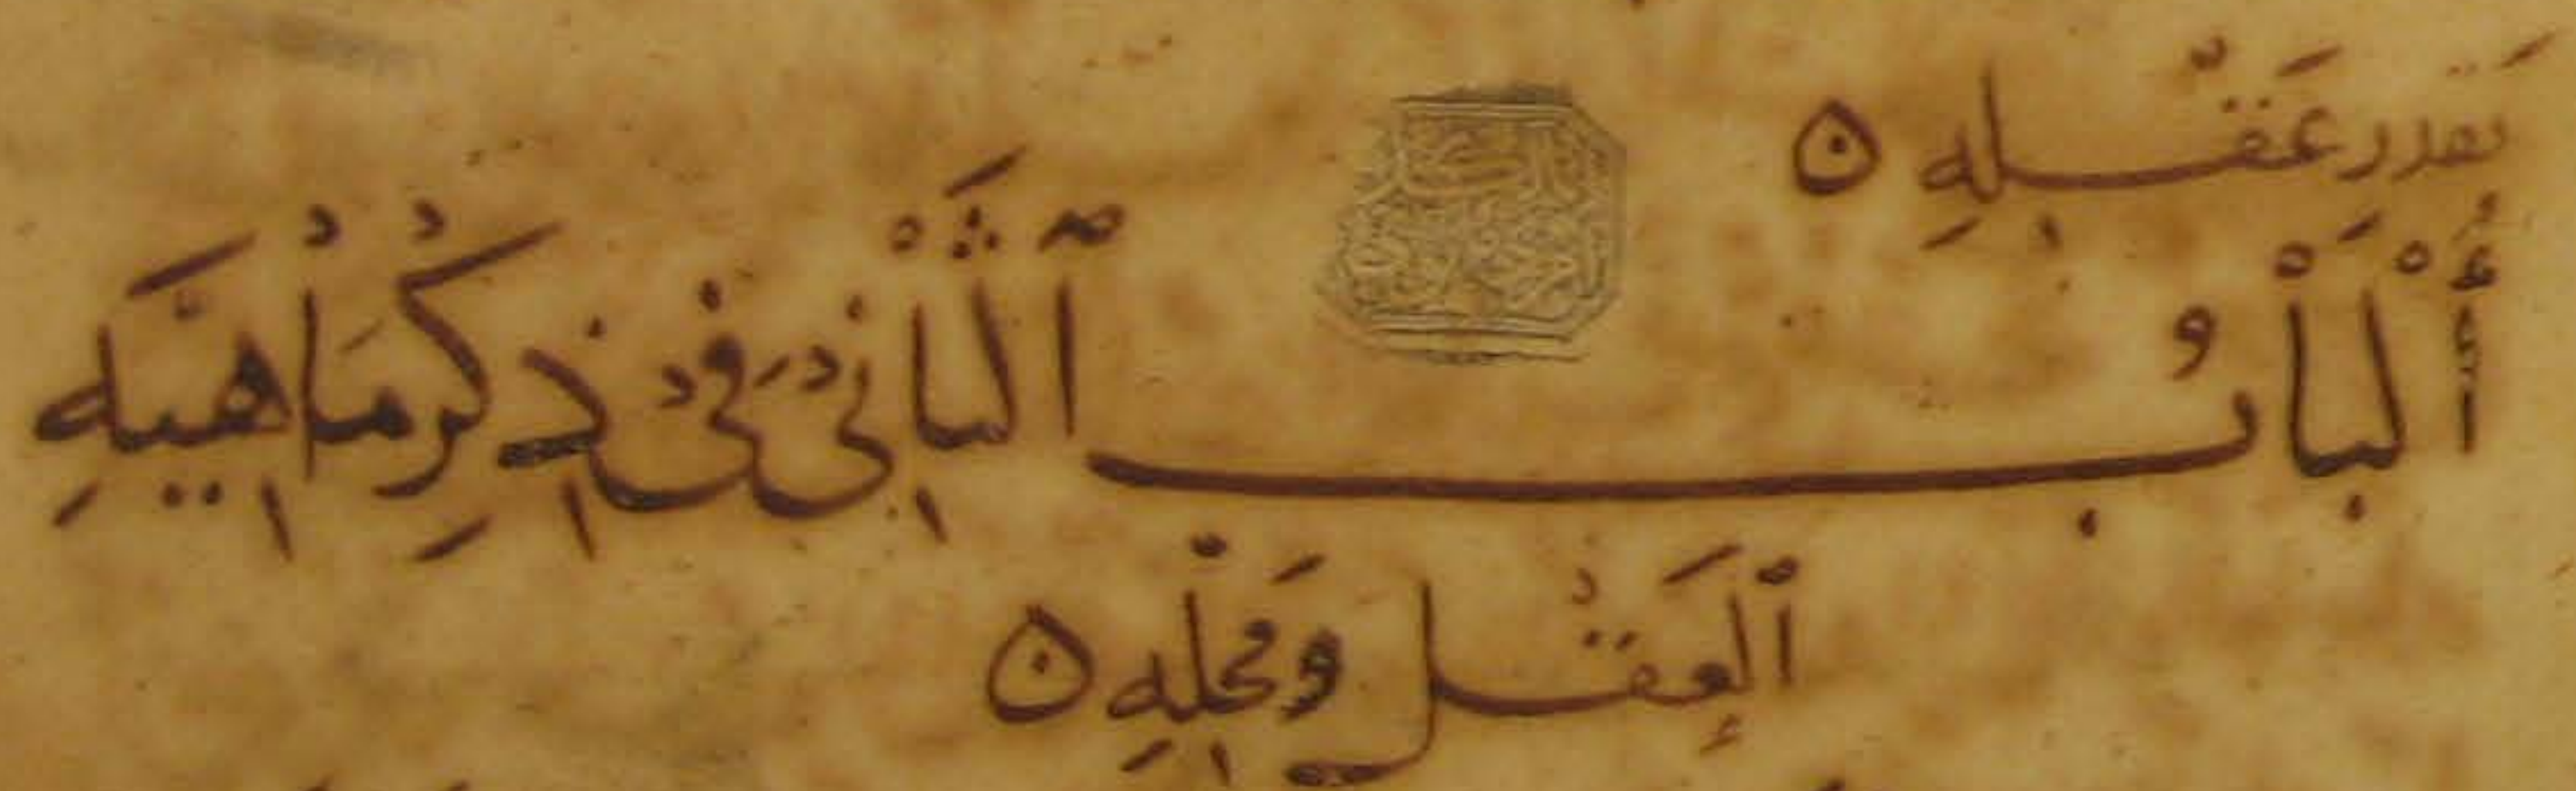 بقدر عقله ه
أَلْبَاْبُ ٱلْثَّاْنِيْ فِيْ ذِكْرِ مَاْهِيَّهِ
ٱلْعَقْل وَمَحْلِهِ ه